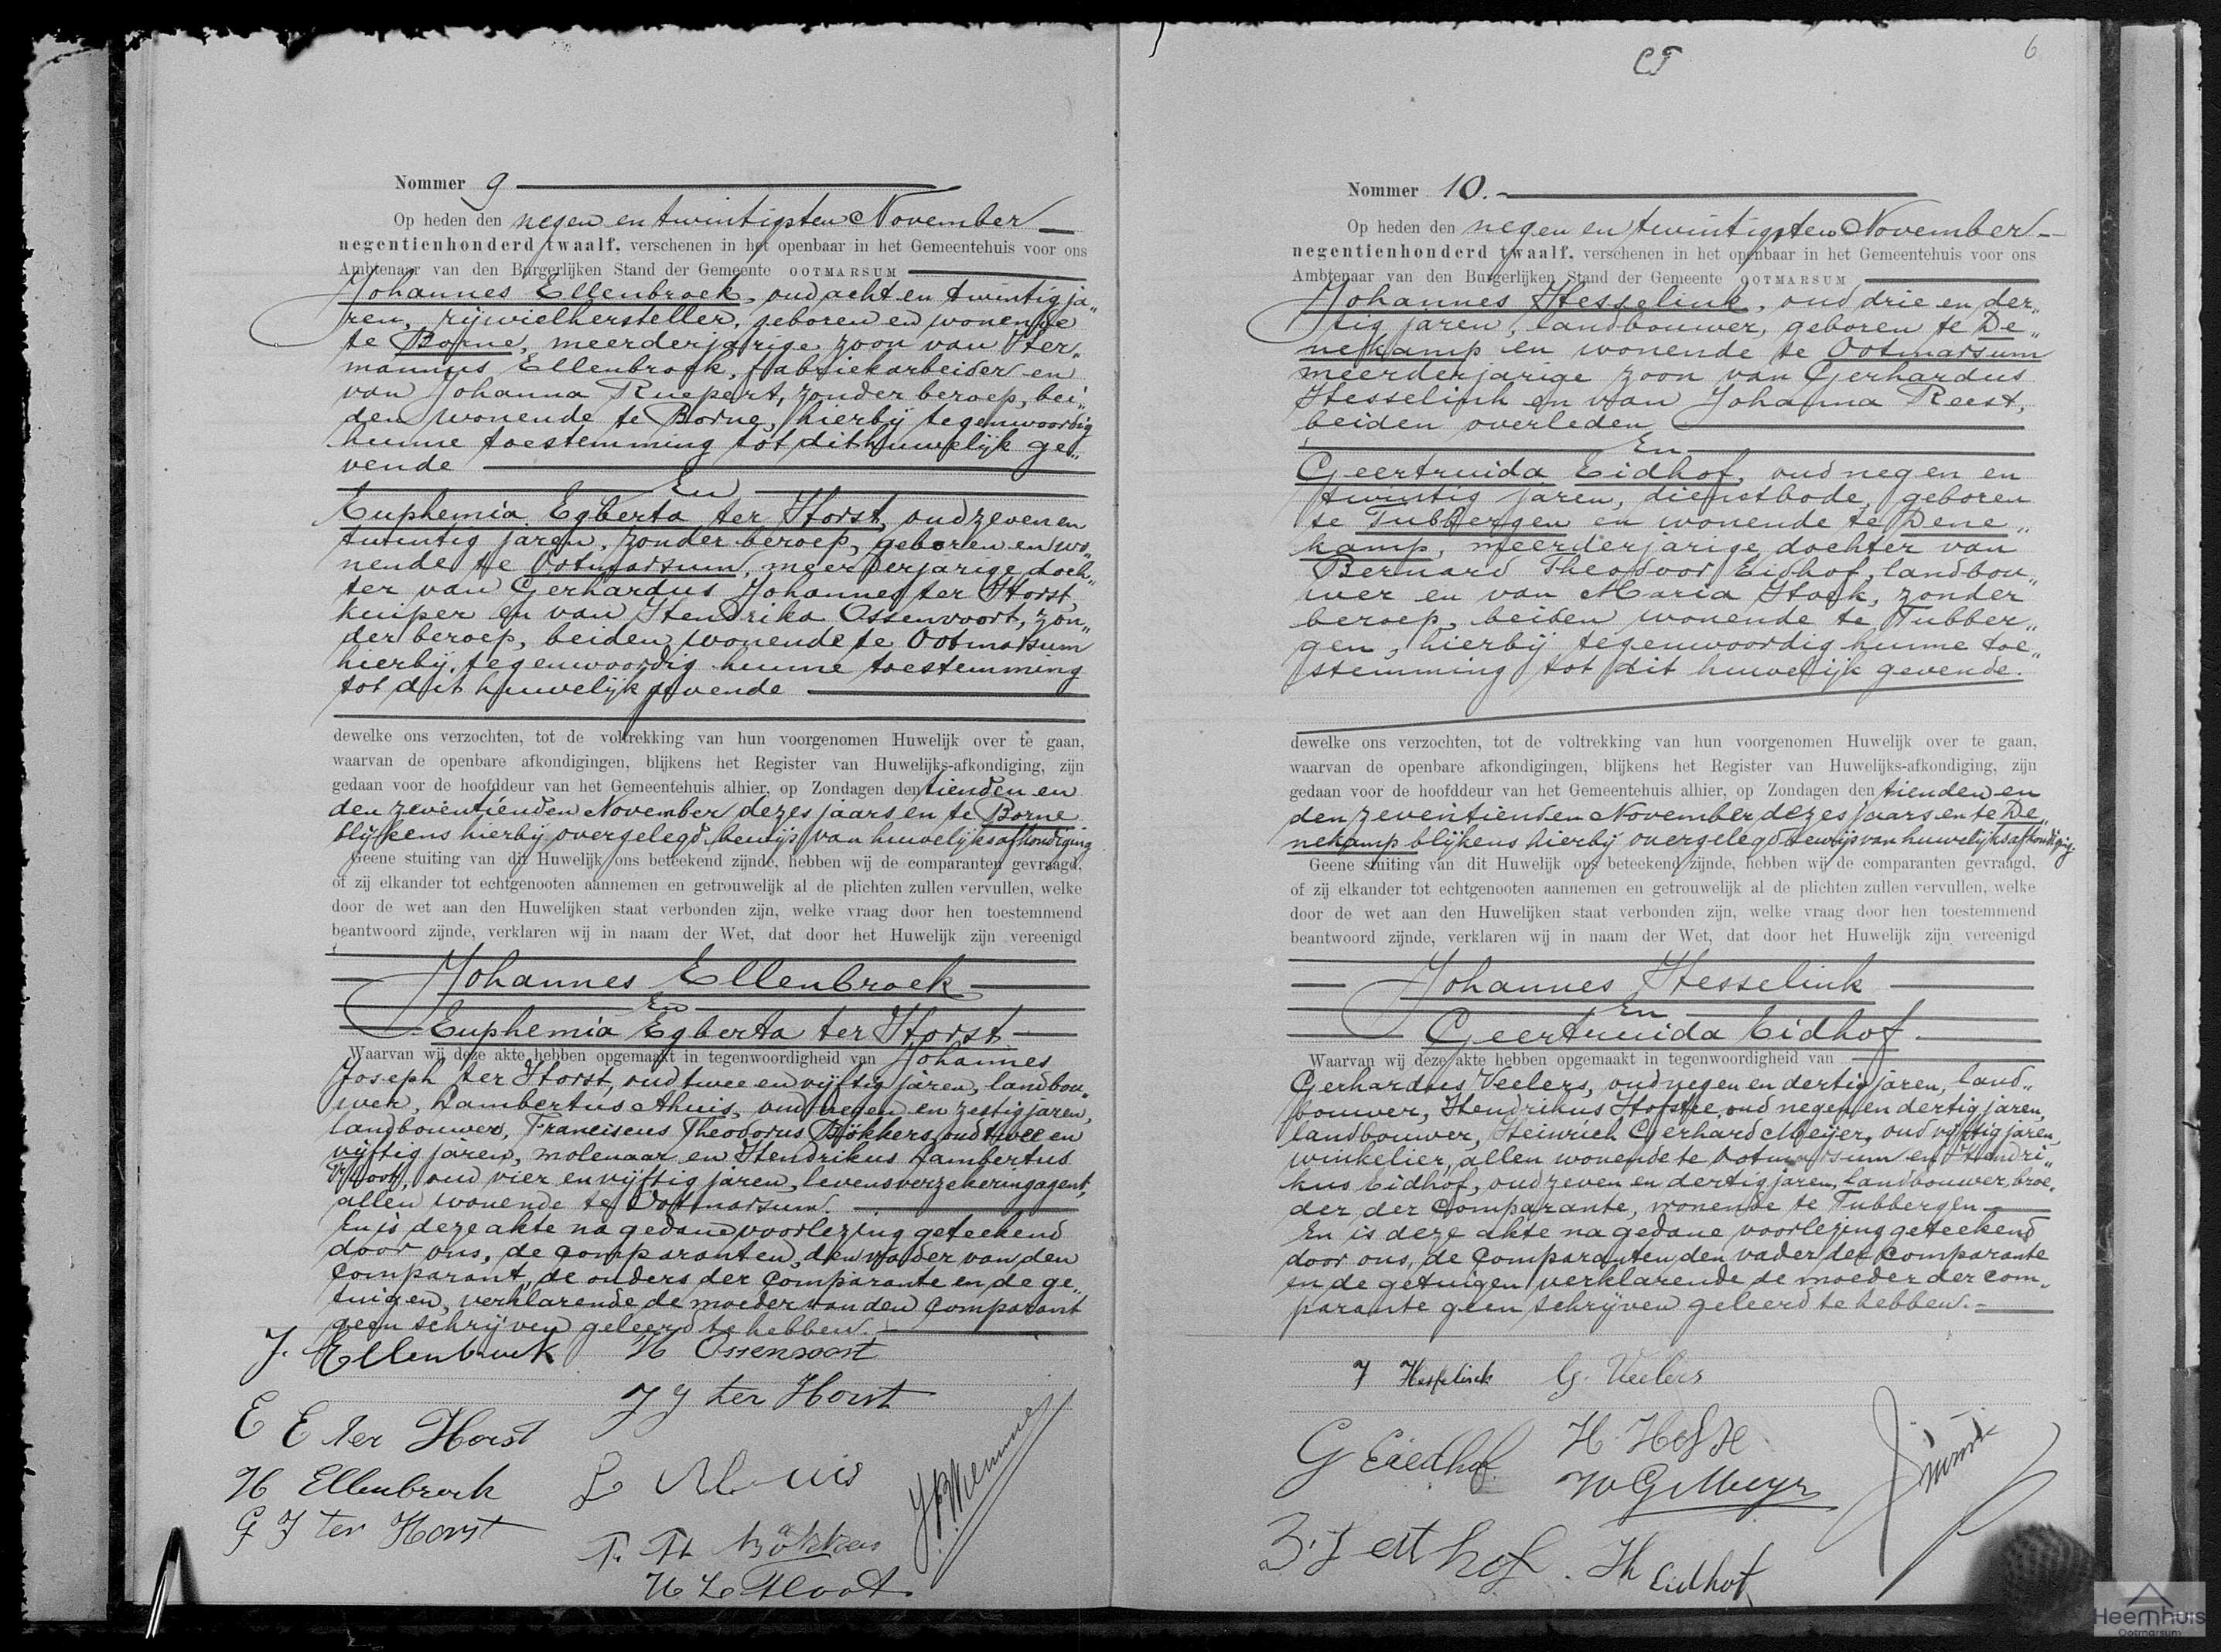 Nommer 9
Op heden den negen en twintigsten November
negentienhonderd twaalf, verschenen in het openbaar in het Gemeentehuis voor ons
Ambtenaar van den Burgerlijken Stand der Gemeente OOTMARSUM
Johannes Ellenbroek, oud acht en twintig ja„
ren, rijwielhersteller, geboren en wonende
te Borne, meerderjarige zoon van Her„
mannus Ellenbroek, fabriekarbeider en
van Johanna Ruepert, zonder beroep, bei„
den wonende te Borne, hierbij tegenwoordig
hunne toestemming tot dit huwelijk ge„
vende
En
Euphemia Egberta ter Horst, oud zeven en
twintig jaren, zonder beroep, geboren en wo„
nende te Ootmarsum, meerderjarige doch„
ter van Gerhardus Johannes ter Horst
kuiper en van Hendrika Ossenvoort, zon„
der beroep, beiden wonende te Ootmarsum
hierbij tegenwoordig hunne toestemming
tot dit huwelijk gevende
dewelke ons verzochten, tot de voltrekking van hun voorgenomen Huwelijk over te gaan,
waarvan de openbare afkondigingen, blijkens het Register van Huwelijks-afkondiging, zijn
gedaan voor de hoofddeur van het Gemeentehuis alhier, op Zondagen den tienden en
den zeventienden November dezes jaars en te Borne
blijkens hierbij overgelegd bewijs van huwelijksafkondiging
Geene stuiting van dit Huwelijk ons beteekend zijnde, hebben wij de comparanten gevraagd,
of zij elkander tot echtgenooten aannemen en getrouwelijk al de plichten zullen vervullen, welke
door de wet aan den Huwelijken staat verbonden zijn, welke vraag door hen toestemmend
beantwoord zijnde, verklaren wij in naam der Wet, dat door het Huwelijk zijn vereenigd
Johannes Ellenbroek
En
Euphemia Egberta ter Horst
Waarvan wij deze akte hebben opgemaakt in tegenwoordigheid van Johannes
Joseph ter Horst, oud twee en vijftig jaren, landbou„
wer, Lambertus Ahuis, oud negen en zestig jaren,
landbouwer, Franciscus Theodorus Bökkers, oud twee en
vijftig jaren, molenaar en Hendrikus Lambertus
Floot, oud vier en vijftig jaren, levensverzekeringagent,
allen wonende te Ootmarsum.
En is deze akte na gedane voorlezing geteekend
door ons, de comparanten, den vader van den
Comparant, de ouders der Comparante en de ge„
tuigen, verklarende de moeder van den Comparant
geen schrijven geleerd te hebben.
J. Ellenbroek H Ossenvoort
J J ter Horst
E E ter Horst
H Ellenbroek
G J ter Horst
H L Floot
CF
6
Nommer 10.
Op heden den negen en twintigsten November
negentienhonderd twaalf, verschenen in het openbaar in het Gemeentehuis voor ons
Ambtenaar van den Burgerlijken Stand der Gemeente OOTMARSUM
Johannes Hesselink, oud drie en der„
tig jaren, landbouwer, geboren te De„
nekamp en wonende te Ootmarsum
meerderjarige zoon van Gerhardus
Hesselink en van Johanna Reest,
beiden overleden
En
Geertruida Eidhof, oud negen en
twintig jaren, dienstbode, geboren
te Tubbergen en wonende te Dene„
kamp, meerderjarige dochter van
Bernard Theodoor Eidhof, landbou„
wer en van Maria Hoek, zonder
beroep, beiden wonende te Tubber„
gen, hierbij tegenwoordig hunne toe„
stemming tot dit huwelijk gevende.
dewelke ons verzochten, tot de voltrekking van hun voorgenomen Huwelijk over te gaan,
waarvan de openbare afkondigingen, blijkens het Register van Huwelijks-afkondiging, zijn
gedaan voor de hoofddeur van het Gemeentehuis alhier, op Zondagen den tienden en
den zeventienden November dezes jaars en te De„
nekamp blijkens hierbij overgelegd bewijs van huwelijksafkondiging.
Geene stuiting van dit Huwelijk ons beteekend zijnde, hebben wij de comparanten gevraagd,
of zij elkander tot echtgenooten aannemen en getrouwelijk al de plichten zullen vervullen, welke
door de wet aan den Huwelijken staat verbonden zijn, welke vraag door hen toestemmend
beantwoord zijnde, verklaren wij in naam der Wet, dat door het Huwelijk zijn vereenigd
Johannes Hesselink
En
Geertruida Eidhof
Waarvan wij deze akte hebben opgemaakt in tegenwoordigheid van
Gerhardus Veelers, oud negen en dertig jaren, land„
bouwer, Hendrikus Hofstee, oud negen en dertig jaren,
landbouwer, Heinrich Gerhard Meijer, oud vijftig jaren,
winkelier, allen wonende te Ootmarsum en Hendri„
kus Eidhof, oud zeven en dertig jaren, landbouwer, broe„
der der Comparante, wonende te Tubbergen
En is deze akte na gedane voorlezing geteekend
door ons, de Comparanten den vader der Comparante
en de getuigen verklarende de moeder der com„
parante geen schrijven geleerd te hebben.
J Hesselink G. Veelers
G Eiedhof
H Eidhof
Heemhuis
Ootmarsum